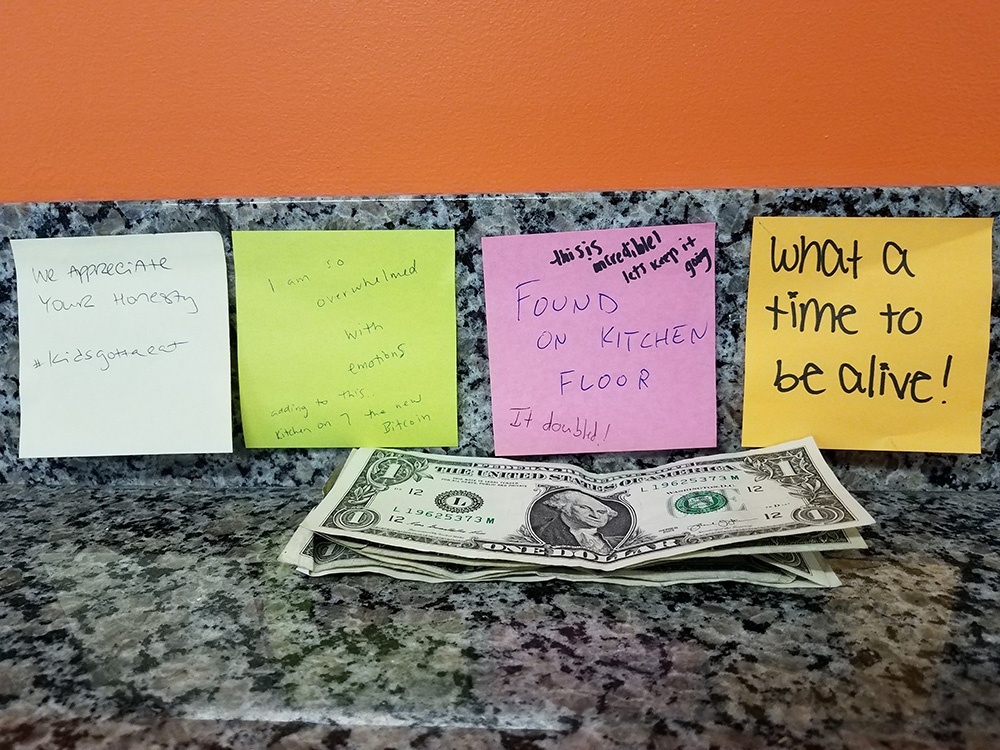 We Appreciate
Your Honesty
#kidsgottaeat
I am so
overwhelmed
with
emotions
adding to this.
Kitchen on 7 the new
Bitcoin
this is
incredible!
lets keep it
going
FOUND
ON KITCHEN
FLOOR
It doubled!
What a
time to
be alive!
THE UNITED STATES OF AMERICA
L 19625373 M
12
L
12
L 19625373 M
12
12
1
1
1
1
ONE DOLLAR